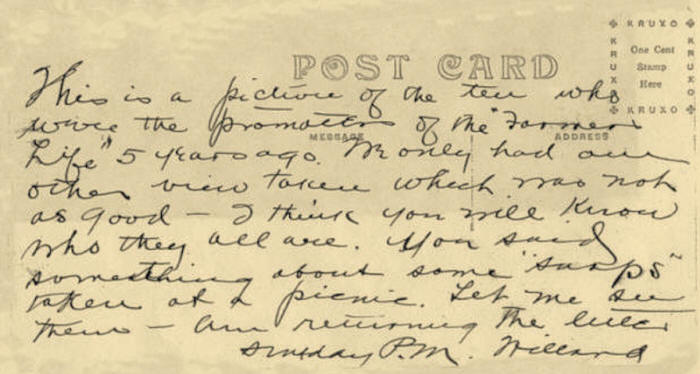 KRUXO
KRUXO
KRUXO
One Cent
Stamp
Here
KRUXO
POST CARD
MESSAGE
ADDRESS
This is a picture of the ten who
were the promoters of the "Farmer
Life" 5 years ago. We only had one
other view taken which was not
as good – I think you will know
who they all are. You said
something about some "snaps"
taken at a picnic. Let me see
them – Am returning the
Sunday P.M. Willard